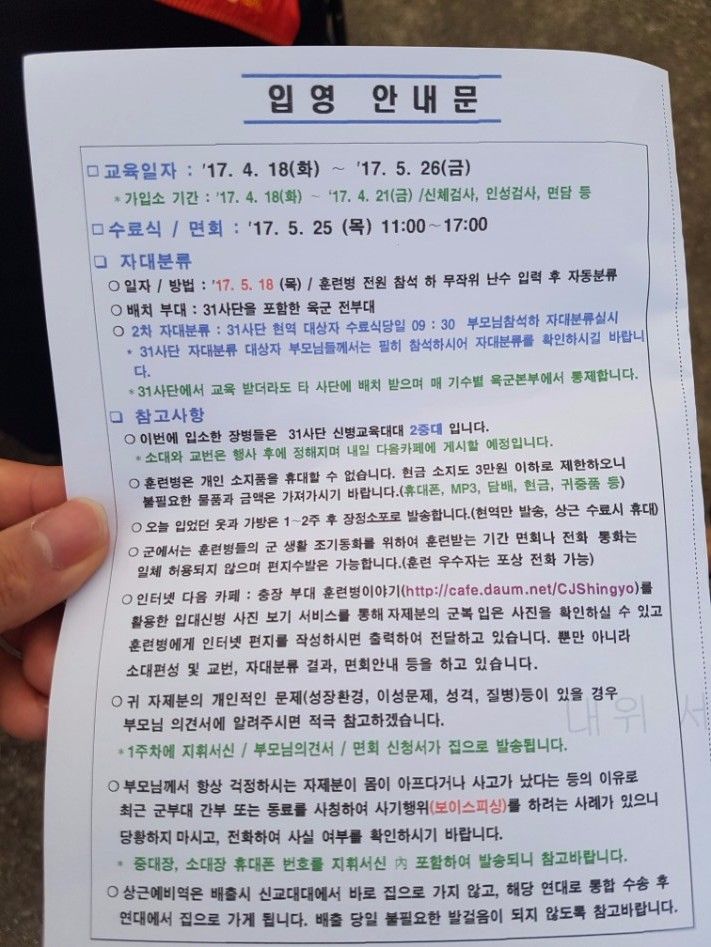 입영 안내문
□ 교육일자 : '17. 4. 18(화) ~ '17. 5. 26(금)
* 가입소 기간 : '17. 4. 18(화) ~ '17. 4. 21(금) /신체검사, 인성검사, 면담 등
□ 수료식 / 면회 : '17. 5. 25 (목) 11:00~17:00
❏ 자대분류
○ 일자 / 방법 : '17. 5. 18 (목) / 훈련병 전원 참석 하 무작위 난수 입력 후 자동분류
○ 배치 부대 : 31사단을 포함한 육군 전부대
○ 2차 자대분류 : 31사단 현역 대상자 수료식당일 09 : 30 부모님참석하 자대분류실시
* 31사단 자대분류 대상자 부모님들께서는 필히 참석하시어 자대분류를 확인하시길 바랍니
다.
*31사단에서 교육 받더라도 타 사단에 배치 받으며 매 기수별 육군본부에서 통제합니다.
❏ 참고사항
○ 이번에 입소한 장병들은 31사단 신병교육대대 2중대 입니다.
*소대와 교번은 행사 후에 정해지며 내일 다음카페에 게시할 예정입니다.
○ 훈련병은 개인 소지품을 휴대할 수 없습니다. 현금 소지도 3만원 이하로 제한하오니
불필요한 물품과 금액은 가져가시기 바랍니다.(휴대폰, MP3, 담배, 현금, 귀중품 등)
○ 오늘 입었던 옷과 가방은 1~2주 후 장정소포로 발송합니다.(현역만 발송, 상근 수료시 휴대)
○ 군에서는 훈련병들의 군 생활 조기동화를 위하여 훈련받는 기간 면회나 전화 통화는
일체 허용되지 않으며 편지수발은 가능합니다.(훈련 우수자는 포상 전화 가능)
○ 인터넷 다음 카페 : 충장 부대 훈련병이야기(http://cafe.daum.net/CJShingyo)를
활용한 입대신병 사진 보기 서비스를 통해 자제분의 군복 입은 사진을 확인하실 수 있고
훈련병에게 인터넷 편지를 작성하시면 출력하여 전달하고 있습니다. 뿐만 아니라
소대편성 및 교번, 자대분류 결과, 면회안내 등을 하고 있습니다.
○ 귀 자제분의 개인적인 문제(성장환경, 이성문제, 성격, 질병)등이 있을 경우
부모님 의견서에 알려주시면 적극 참고하겠습니다.
*1주차에 지휘서신 / 부모님의견서 / 면회 신청서가 집으로 발송됩니다.
○ 부모님께서 항상 걱정하시는 자제분이 몸이 아프다거나 사고가 났다는 등의 이유로
최근 군부대 간부 또는 동료를 사칭하여 사기행위(보이스피싱)를 하려는 사례가 있으니
당황하지 마시고, 전화하여 사실 여부를 확인하시기 바랍니다.
* 중대장, 소대장 휴대폰 번호를 지휘서신 內 포함하여 발송되니 참고바랍니다.
○ 상근예비역은 배출시 신교대대에서 바로 집으로 가지 않고, 해당 연대로 통합 수송 후
연대에서 집으로 가게 됩니다. 배출 당일 불필요한 발걸음이 되지 않도록 참고바랍니다.